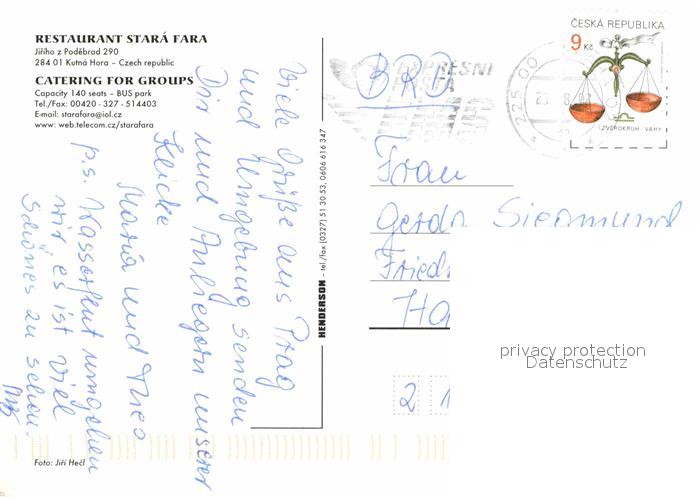 RESTAURANT STARÁ FARA
Jiřího z Poděbrad 290
284 01 Kutná Hora – Czech republic
CATERING FOR GROUPS
Capacity 140 seats – BUS park
Tel./Fax: 00420 - 327 - 514403
E-mail: starafara@iol.cz
www: web.telecom.cz/starafara
Viele Grüße aus Prag
und Umgebung senden
Dir und Anliegern unserer
Maria und Theo
p.s. Wasserflut umgeben
wir es ist viel
Schönes zu sehen.
Foto: Jiří Hečl
HENDERSON - tel./fax (0327) 51 30 53, 0606 616 347
BRD
EXPRESNÍ
POŠTA
EMS
225 00
ČESKÁ REPUBLIKA
9 Kč
ZVĚROKRUH - VÁHY
Frau
Gerda Siegmund
Fried
Ha
2 1
privacy protection
Datenschutz